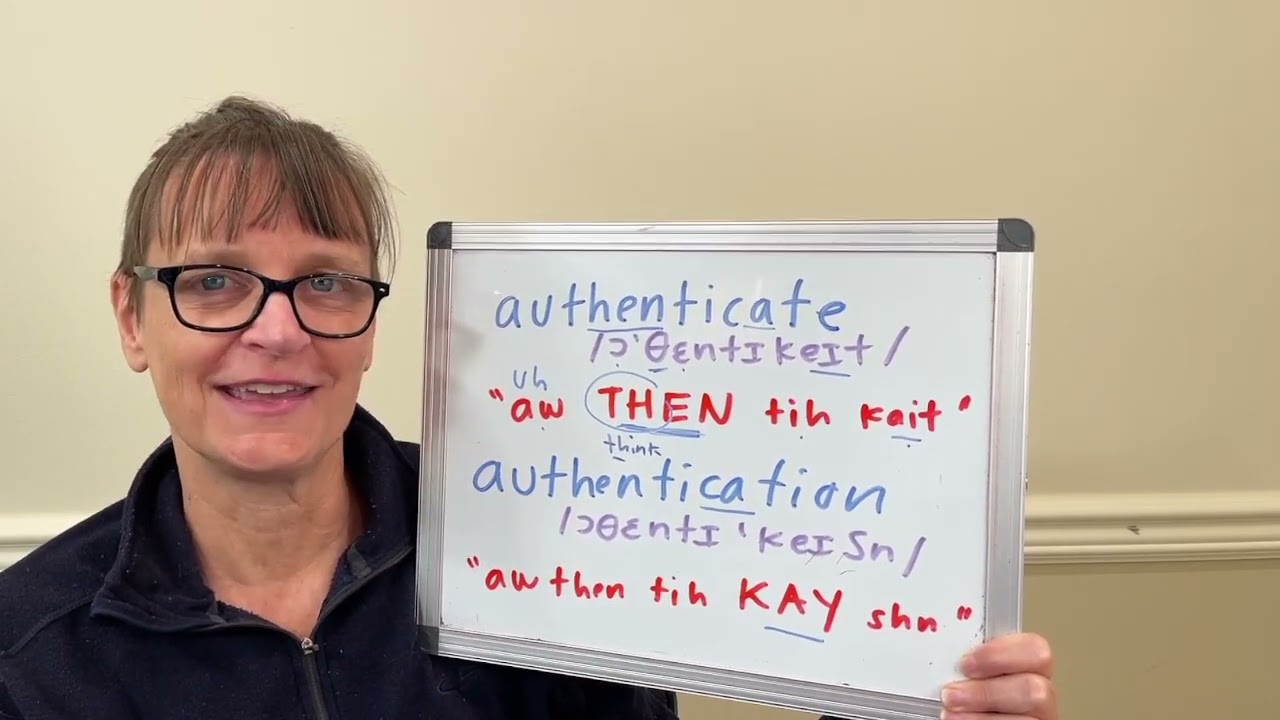 authenticate
/ɔˈθɛntɪkeɪt/
uh
"aw THEN tih kait"
think
authentication
/ɔθɛntɪˈkeɪʃn/
"aw then tih KAY shn"